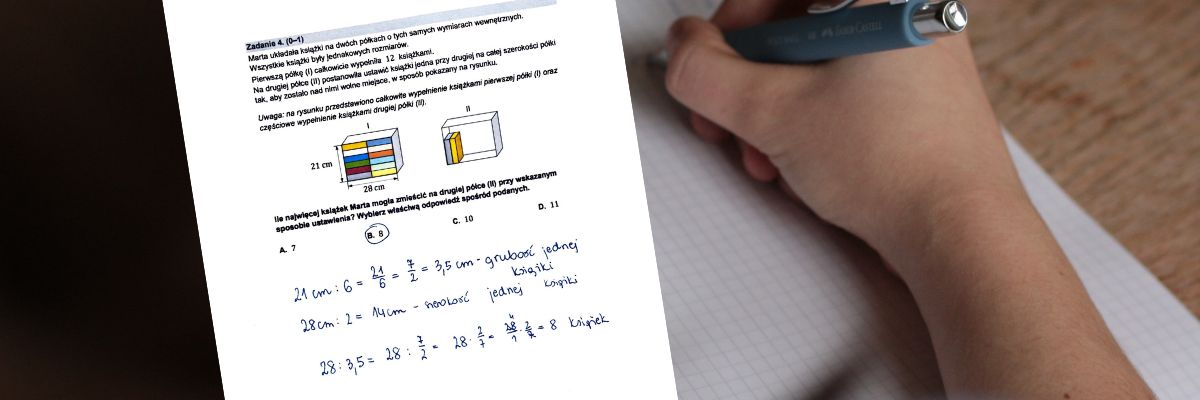 Zadanie 4. (0–1)
Marta układała książki na dwóch półkach o tych samych wymiarach wewnętrznych.
Wszystkie książki były jednakowych rozmiarów.
Pierwszą półkę (I) całkowicie wypełniła 12 książkami.
Na drugiej półce (II) postanowiła ustawić książki jedna przy drugiej na całej szerokości półki
tak, aby zostało nad nimi wolne miejsce, w sposób pokazany na rysunku.
Uwaga: na rysunku przedstawiono całkowite wypełnienie książkami pierwszej półki (I) oraz
częściowe wypełnienie książkami drugiej półki (II).
I
II
21 cm
28 cm
Ile najwięcej książek Marta mogła zmieścić na drugiej półce (II) przy wskazanym
sposobie ustawienia? Wybierz właściwą odpowiedź spośród podanych.
A. 7 B. 8 C. 10 D. 11
21 cm : 6 = 21/6 = 7/2 = 3,5 cm - grubość jednej
książki
28cm : 2 = 14cm - szerokość jednej książki
28 : 3,5 = 28 : 7/2 = 28 · 2/7 = 28/1 · 2/7 = 8 książek
FABER-CASTELL